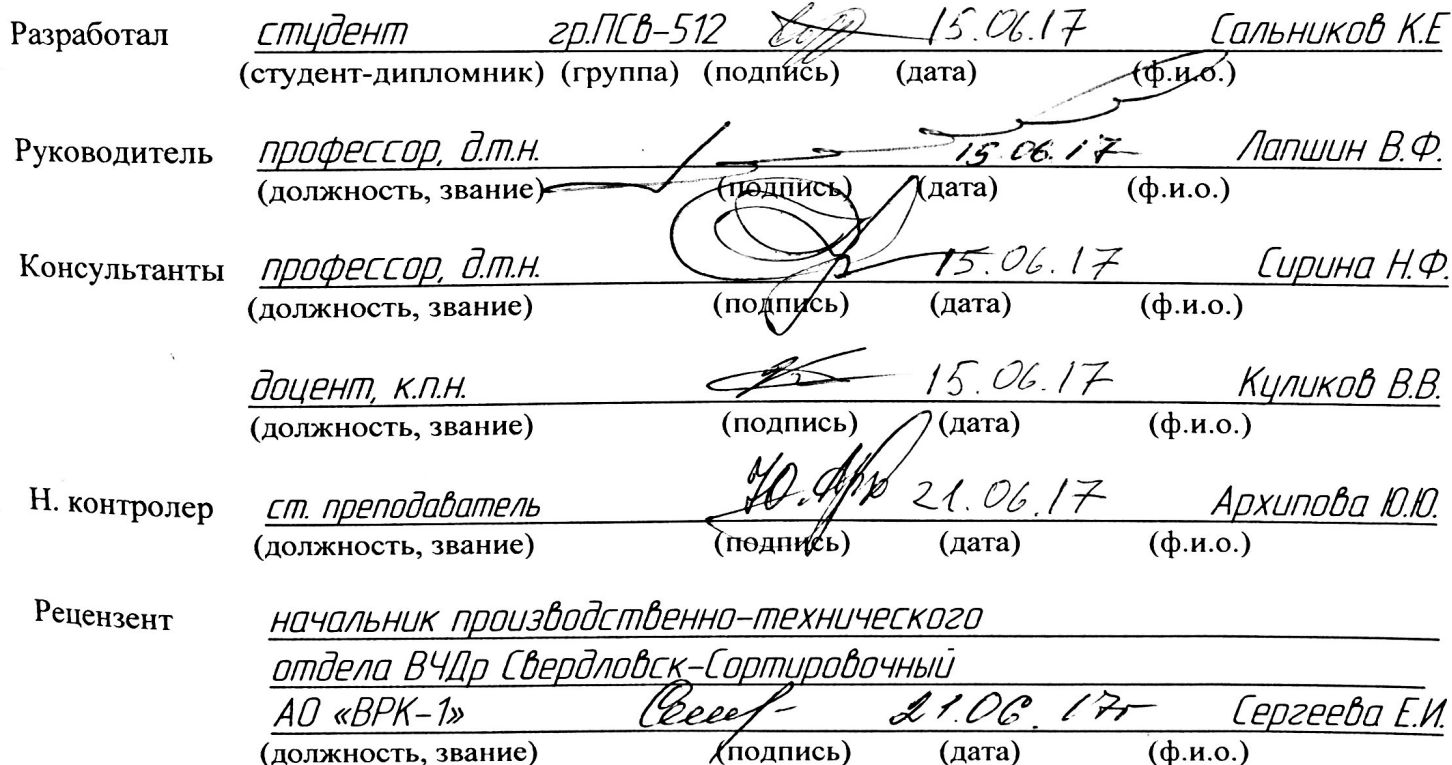 Разработал студент гр.ПСв-512 15.06.17 Сальников К.Е
(студент-дипломник) (группа) (подпись) (дата) (ф.и.о.)
Руководитель профессор, д.т.н. 15.06.17 Лапшин В.Ф.
(должность, звание) (подпись) (дата) (ф.и.о.)
Консультанты профессор, д.т.н. 15.06.17 Сирина Н.Ф.
(должность, звание) (подпись) (дата) (ф.и.о.)
доцент, к.п.н. 15.06.17 Куликов В.В.
(должность, звание) (подпись) (дата) (ф.и.о.)
Н. контролер ст. преподаватель 21.06.17 Архипова Ю.Ю.
(должность, звание) (подпись) (дата) (ф.и.о.)
Рецензент начальник производственно-технического
отдела ВЧДр Свердловск-Сортировочный
АО «ВРК-1» 21.06.17г Сергеева Е.И.
(должность, звание) (подпись) (дата) (ф.и.о.)